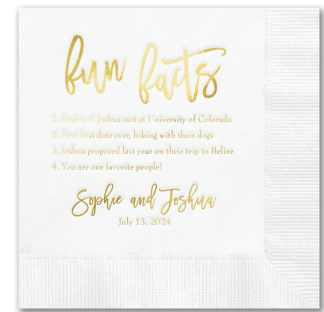 fun facts
1. Sophie & Joshua met at University of Colorado
2. Best first date ever, hiking with their dogs
3. Joshua proposed last year on their trip to Belize
4. You are our favorite people!
Sophie and Joshua
July 13, 2024